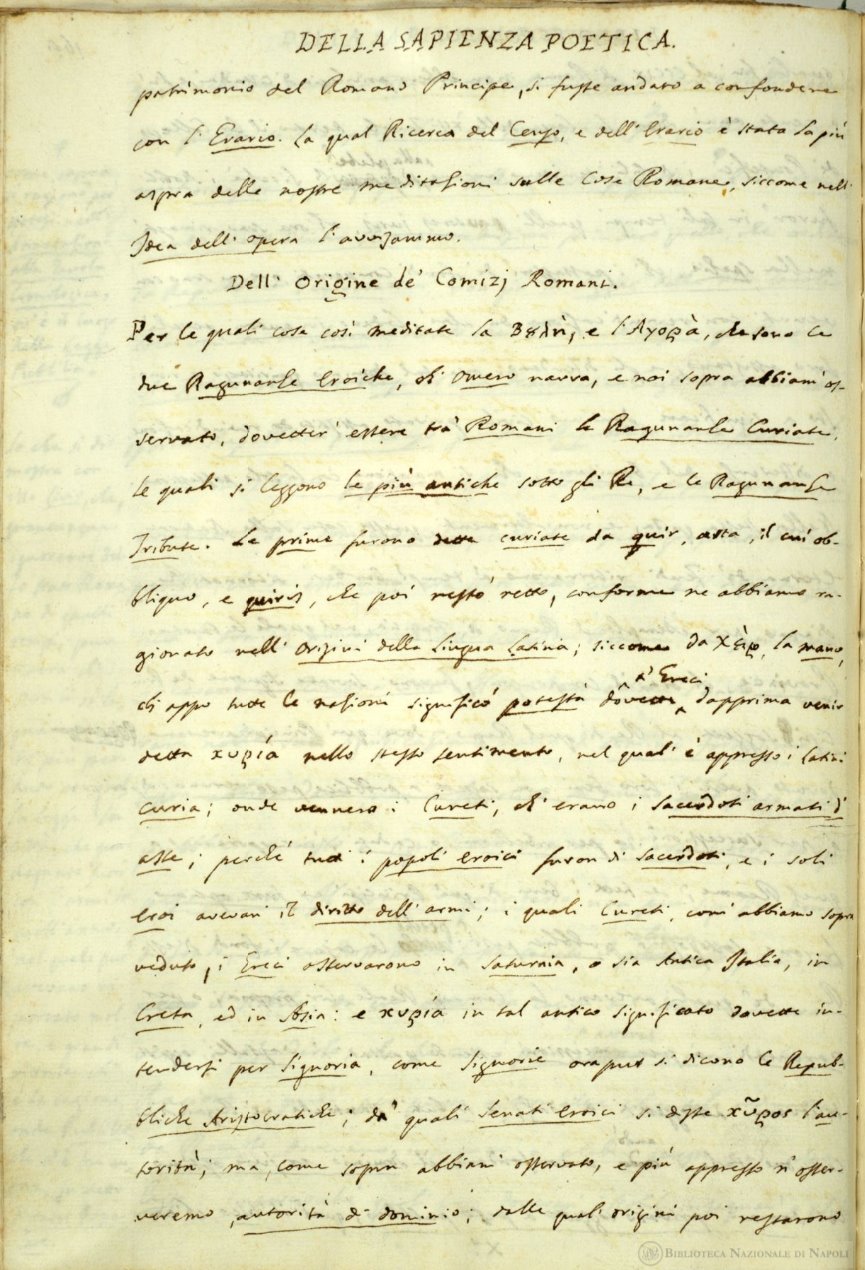 DELLA SAPIENZA POETICA.
patrimonio del Romano Principe, si fusse andato a confondere
con l' Erario. La qual Ricerca del Censo, e dell' Erario è stata la più
aspra delle nostre meditazioni sulle Cose Romane, siccome nell'
Idea dell' opera l' avvisammo.
Dell' Origine de' Comizj Romani.
Per le quali cose così meditate la Βȣλὴ, e l' Αγορὰ, che sono le
due Ragunanze Eroiche, ch' Omero narra, e noi sopra abbiam' os-
servato, dovetter' essere trà Romani le Ragunanze Curiate,
le quali si leggono le più antiche sotto gli Re, e le Ragunanze
Tribute. Le prime furono dette curiate da quir, asta, il cui ob-
bliquo, e quiris, che poi restò retto, conforme ne abbiamo ra-
gionato nell' Origini della Lingua Latina; siccome da χεὶρ, la mano,
ch' appo tutte le nazioni significò potestà dovette a' Greci dapprima venir
detta κυρία nello stesso sentimento, nel qual' è appresso i Latini
curia; onde vennero i Cureti, ch' erano i sacerdoti armati d'
aste; perchè tutti i popoli eroici furon di sacerdoti, e i soli
Eroi avevan il diritto dell' armi; i quali Cureti, com' abbiamo sopra
veduto, i Greci osservarono in Saturnia, o sia Antica Italia, in
Creta, ed in Asia: e κυρία in tal antico significato dovette in-
tendersi per Signoria, come Signorie orapur si dicono le Repub-
bliche Aristocratiche; da' quali Senati Eroici si disse κῦρος l' au-
torità; ma, come sopra abbiam' osservato, e più appresso n' osser-
veremo, autorità di dominio; dalle quali origini poi restarono
BIBLIOTECA NAZIONALE DI NAPOLI